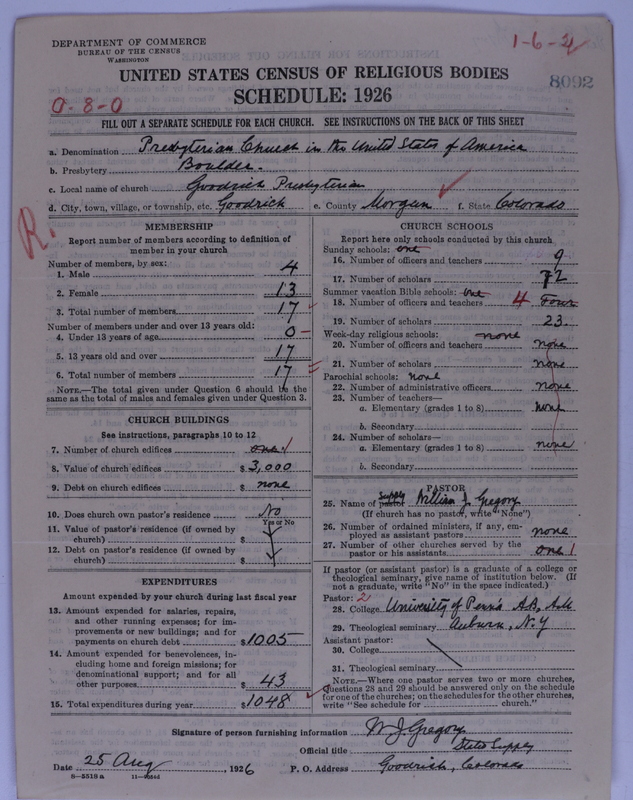 DEPARTMENT OF COMMERCE
BUREAU OF THE CENSUS
WASHINGTON
1-6-
8092
UNITED STATES CENSUS OF RELIGIOUS BODIES
SCHEDULE: 1926
0-8-0
FILL OUT A SEPARATE SCHEDULE FOR EACH CHURCH. SEE INSTRUCTIONS ON THE BACK OF THIS SHEET
a. Denomination Presbyterian Church in the United States of America
b. Presbytery Boulder.
c. Local name of church Goodrich Presbyterian
d. City, town, village, or township, etc. Goodrich e. County Morgan f. State Colorado
R.
MEMBERSHIP
Report number of members according to definition of member in your church
Number of members, by sex:
1. Male 4
2. Female 13
3. Total number of members 17
Number of members under and over 13 years old:
4. Under 13 years of age 0
5. 13 years old and over 17
6. Total number of members 17
NOTE.—The total given under Question 6 should be the
same as the total of males and females given under Question 3.
CHURCH BUILDINGS
See instructions, paragraphs 10 to 12
7. Number of church edifices one 1
8. Value of church edifices $ 3,000
9. Debt on church edifices $ none
10. Does church own pastor's residence No
Yes or No
11. Value of pastor's residence (if owned by
church) $
12. Debt on pastor's residence (if owned by
church) $
EXPENDITURES
Amount expended by your church during last fiscal year
13. Amount expended for salaries, repairs,
and other running expenses; for im-
provements or new buildings; and for
payments on church debt $ 1005
14. Amount expended for benevolences, in-
cluding home and foreign missions; for
denominational support; and for all
other purposes $ 43
15. Total expenditures during year $ 1048
CHURCH SCHOOLS
Report here only schools conducted by this church
Sunday schools: one
16. Number of officers and teachers 9
17. Number of scholars 72
Summer vacation Bible schools: one
18. Number of officers and teachers 4 Four
19. Number of scholars 23.
Week-day religious schools: none
20. Number of officers and teachers none
21. Number of scholars none
Parochial schools: none
22. Number of administrative officers none
23. Number of teachers—
a. Elementary (grades 1 to 8) none
b. Secondary
24. Number of scholars—
a. Elementary (grades 1 to 8) none
b. Secondary
PASTOR
25. Name of pastor Supply William J. Gregory
(If church has no pastor, write "None")
26. Number of ordained ministers, if any, em-
ployed as assistant pastors none
27. Number of other churches served by the
pastor or his assistants one 1
If pastor (or assistant pastor) is a graduate of a college or
theological seminary, give name of institution below. (If
not a graduate, write "No" in the space indicated.)
Pastor: 2
28. College University of Penn'a A.B.
29. Theological seminary Auburn, N.Y
Assistant pastor:
30. College
31. Theological seminary
NOTE.—Where one pastor serves two or more churches,
Questions 28 and 29 should be answered only on the schedule
for one of the churches; on the schedules for the other churches,
write "See schedule for church."
Signature of person furnishing information W. J. Gregory
Official title Stated Supply
Date 25 Aug, 1926 P. O. Address Goodrich, Colorado
8-5518 a